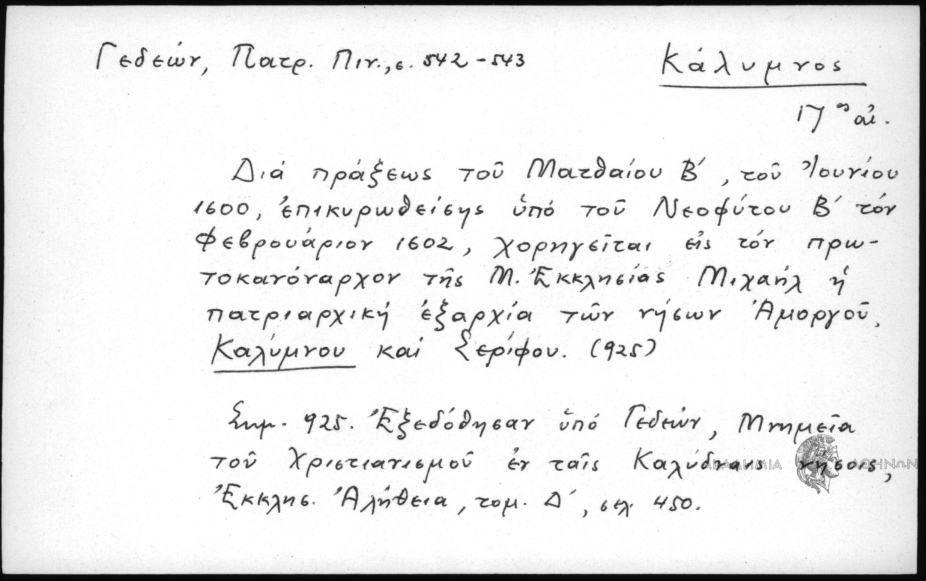 Γεδεών, Πατρ. Πιν., σ. 542-543
Κάλυμνος
17ος αἰ.
Διά πράξεως τοῦ Ματθαίου Β΄, τοῦ Ἰουνίου
1600, ἐπικυρωθείσης ὑπό τοῦ Νεοφύτου Β΄ τόν
Φεβρουάριον 1602, χορηγεῖται εἰς τόν πρω-
τοκανόναρχον τῆς Μ. Ἐκκλησίας Μιχαήλ ἡ
πατριαρχική ἐξαρχία τῶν νήσων Ἀμοργοῦ,
Καλύμνου καί Σερίφου. (925)
Σημ. 925. Ἐξεδόθησαν ὑπό Γεδεών, Μνημεῖα
τοῦ Χριστιανισμοῦ ἐν ταῖς Καλύδναις νήσοις,
Ἐκκλησ. Ἀλήθεια, τομ. Δ΄, σελ 450.
ΑΚΑΔΗΜΙΑ ΑΘΗΝΩΝ